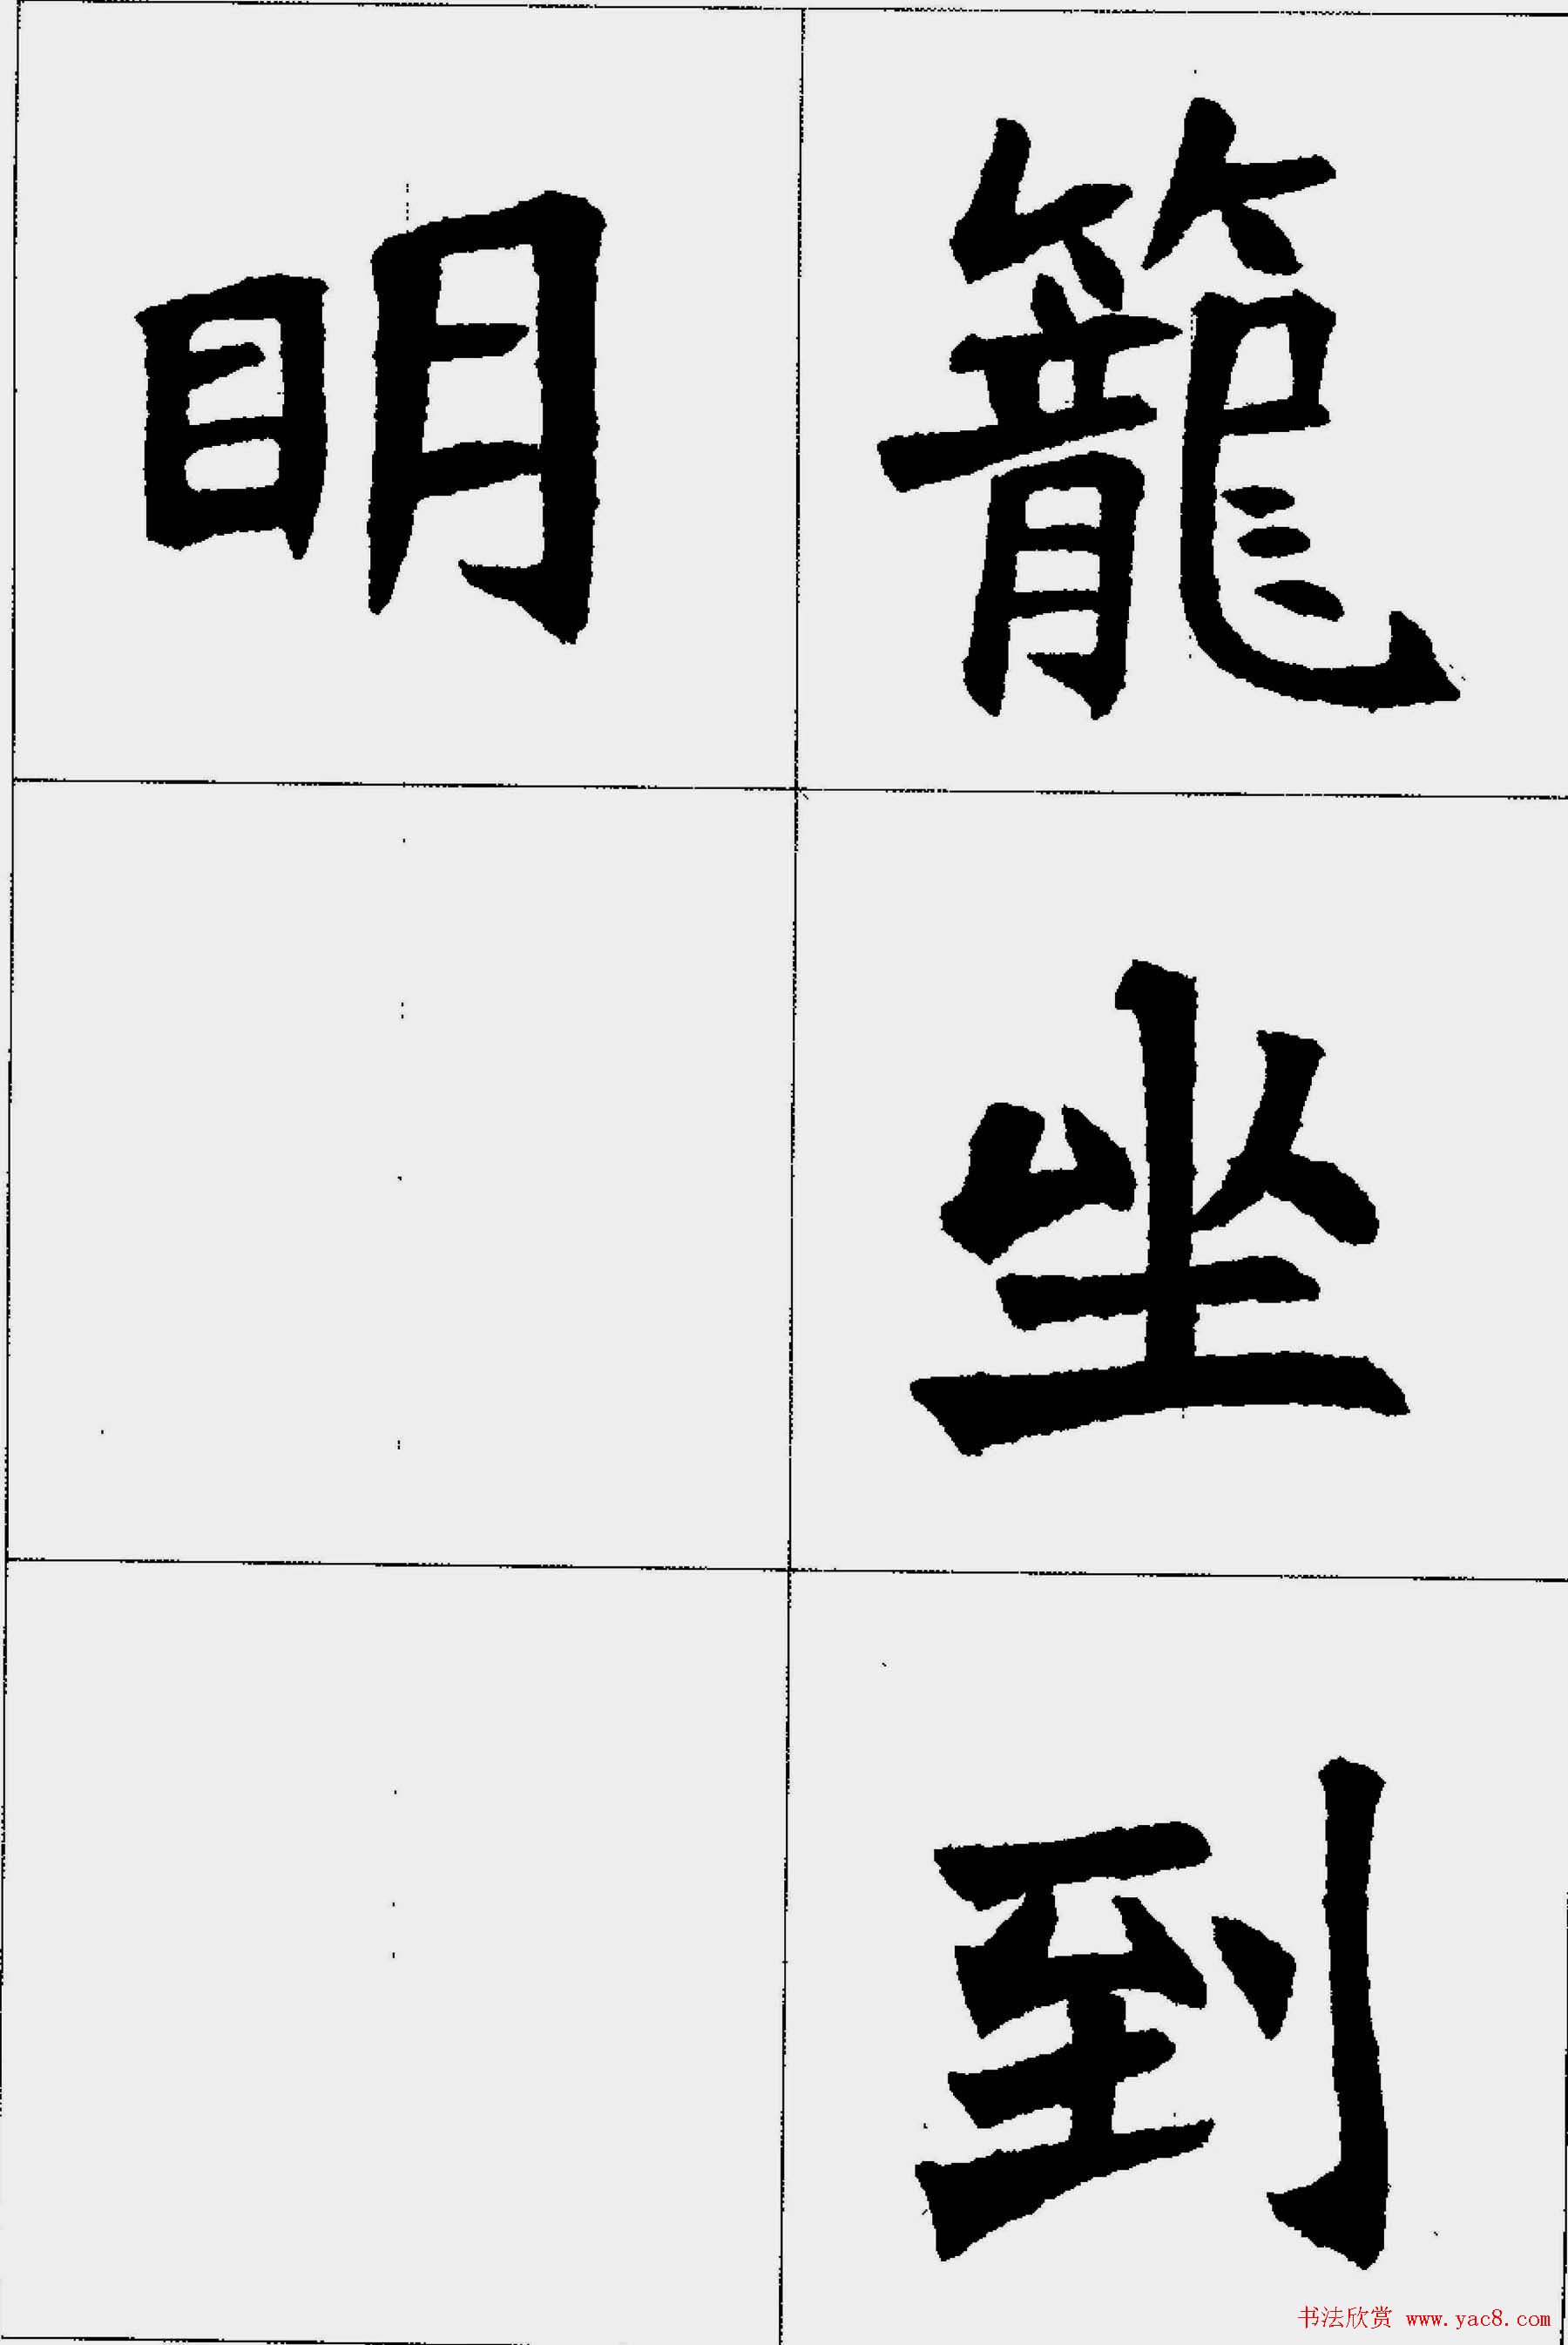 籠坐到
明
书法欣赏 www.yac8.com